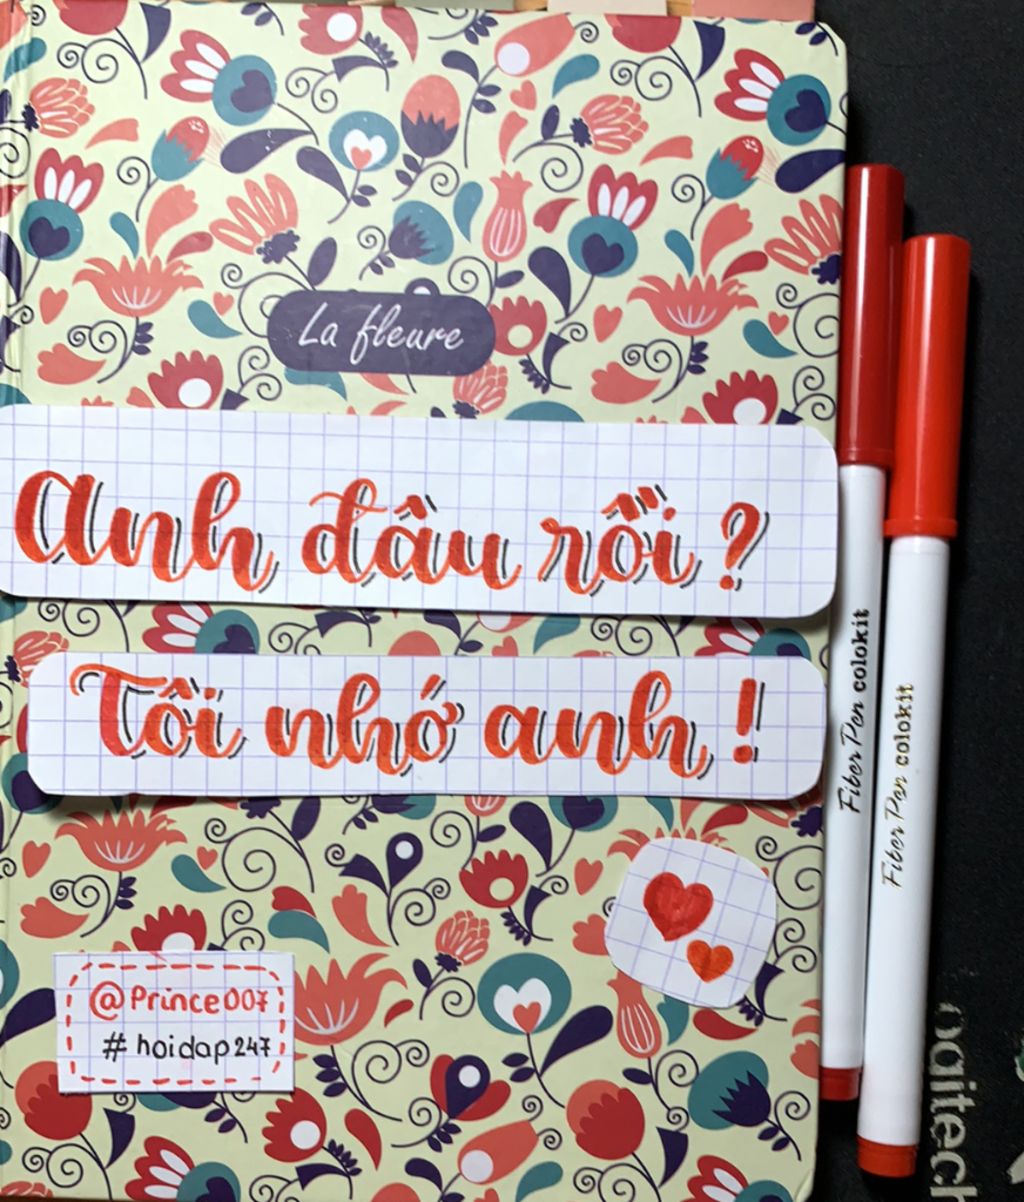 La fleure
Anh đâu rồi?
Tồi nhớ anh!
@Prince007
#hoidap247
Fiber Pen colokit
Fiber Pen colokit